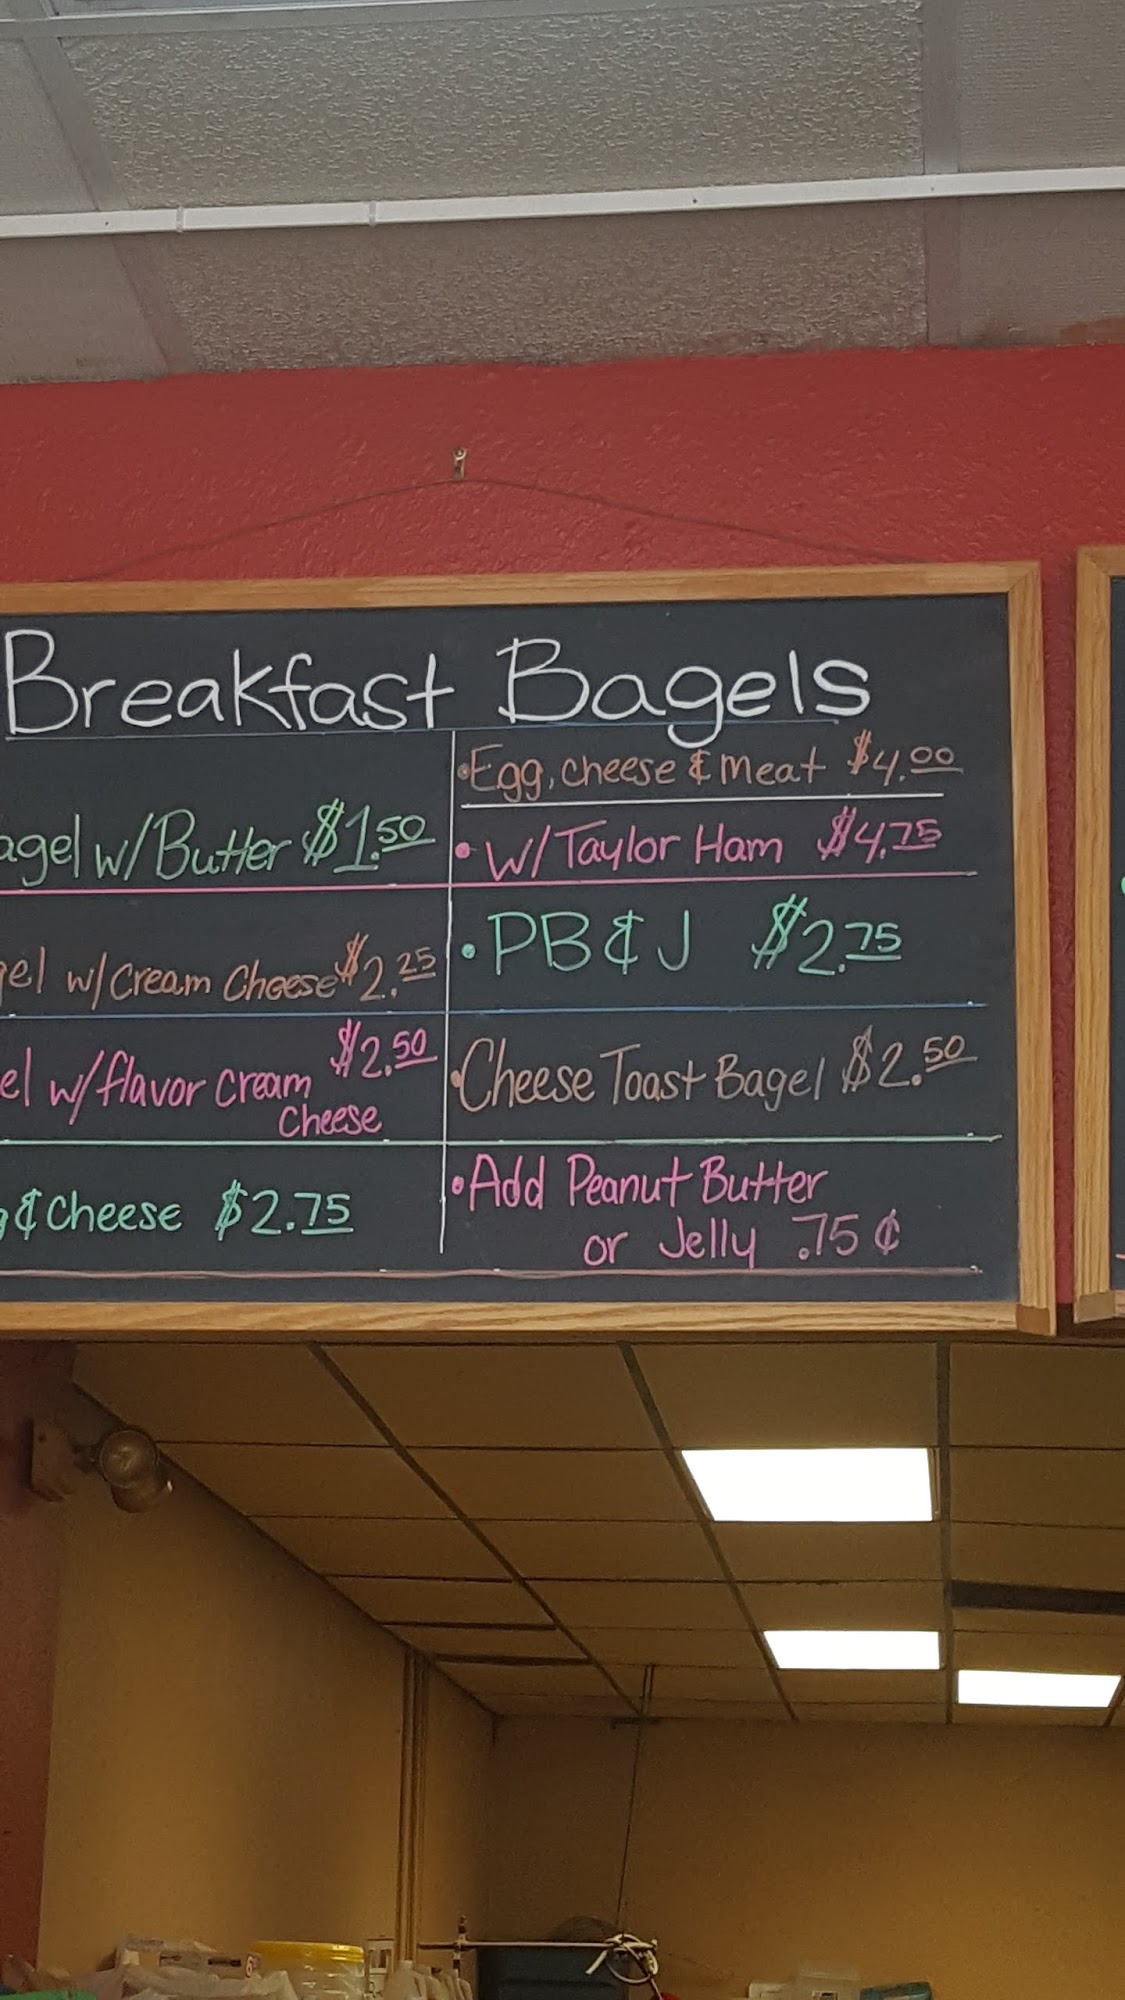 Breakfast Bagels
agel w/Butter $1.50
gel w/Cream Cheese $2.25
el w/flavor cream $2.50
Cheese
g & Cheese $2.75
• Egg, cheese & meat $4.00
• w/Taylor Ham $4.75
• PB & J $2.75
• Cheese Toast Bagel $2.50
• Add Peanut Butter
or Jelly .75¢